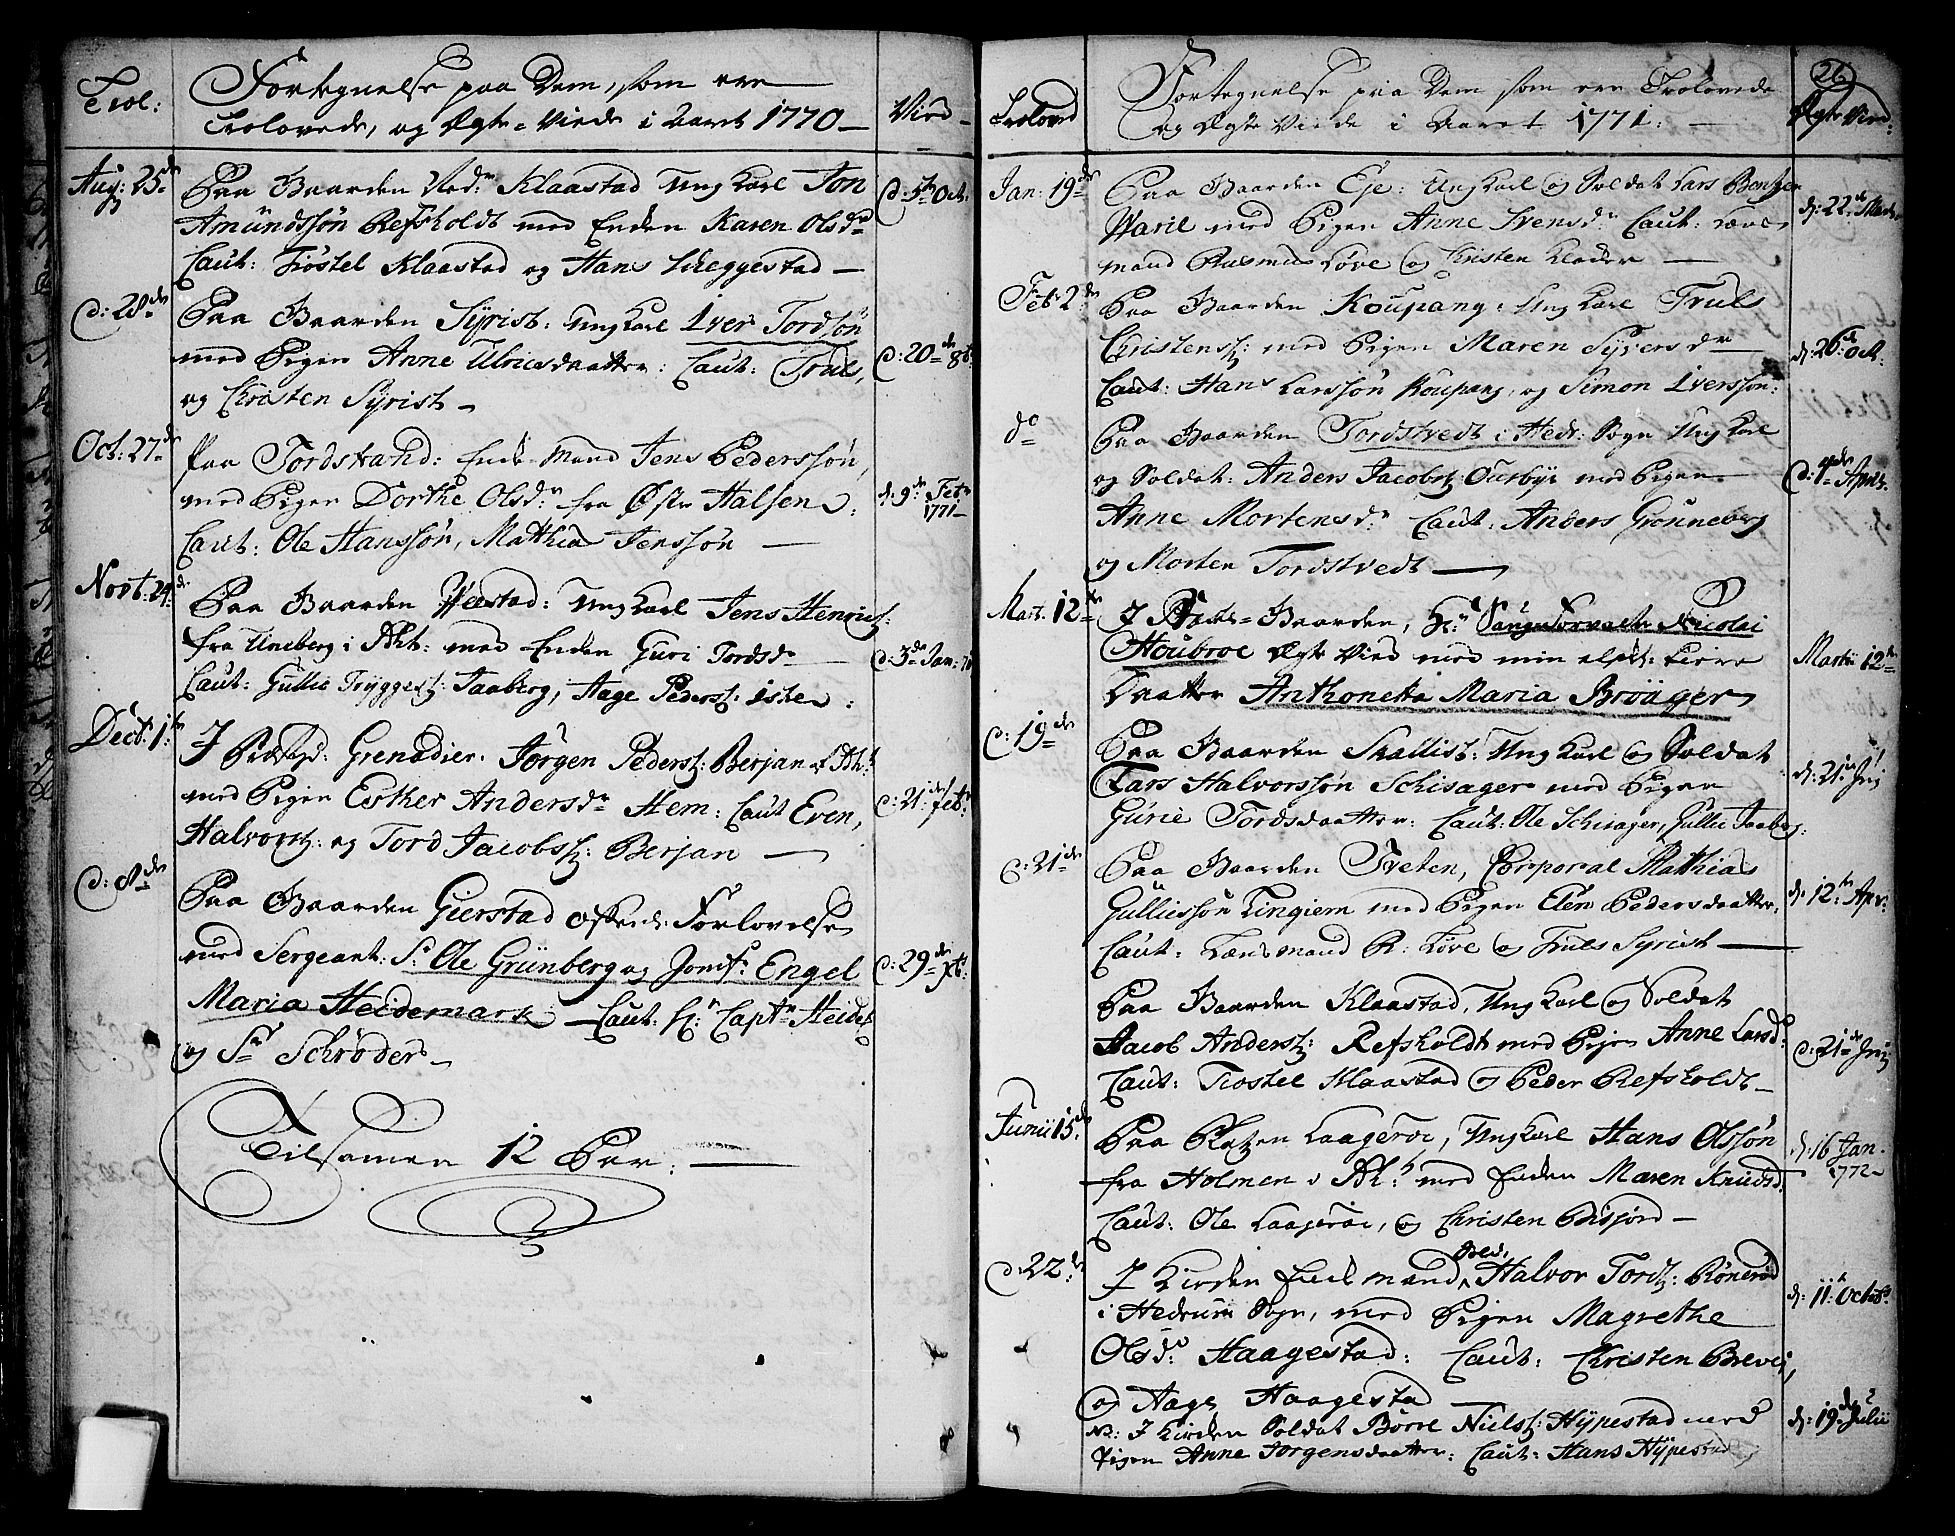 Trol:
Fortegnelse paa Dem, som ere
Trolovede, og Ægte-Viede i Aaret 1770
Vied
Aug: 25de
Paa Gaarden Ned: Klaastad Ung Karl Jon
Amundssøn Refsholdt med Enken Karen Olsdr
Caut: Kiøstel Klaastad og Hans Skeggestad
d: 5te Oct.
d: 28de
Paa Gaarden Syrist: Ung Karl Iver Tordsøn
med Pigen Anne Ulricsdaatter: Caut: Truls,
og Christen Syrist
d: 20de 8br
Oct: 27de
Paa Tordstrand: Enke Mand Jens Pederssøn,
med Pigen Dorthe Olsdr fra Østre Halsen:
Caut: Ole Hanssøn, Mathias Jenssøn
d: 9de Febr 1771
Novb: 24de
Paa Gaarden Veestad: Ung Karl Jens Henrics:
fra Uneberg i med Enken Guri Tordsdr
Caut: Gullic Tryggess: Taaberg, Aage Peders:
d: 3de Jan: 71
Decb: 1te
I Grenadier Jørgen Peders: Berjan
med Pigen Esther Andersdr Hem: Caut Even,
Halvors: og Tord Jacobs: Berjan
d: 21de Febr
d: 8de
Paa Gaarden Gierstad Forlovelse
med Sergeant: Sr Ole Grünberg og Jomfr Engel
Maria Heidemark Caut: Hr Captn
og Sr Schrøder
d: 29de Xbr
Tilsamen 12 Par:
26
Troloved
Fortegnelse paa Dem som ere Trolovede
og Ægte Viede i Aaret 1771:
Ægte Vied:
Jan: 19de
Paa Gaarden Eje: Ung Karl og Soldat Lars Bentzen
Varil med Pigen Anne Svensdr Caut: Lens-
mand Rasmus Løve og Christen
d: 22de
Feb: 2de
Paa Gaarden Koupang: Ung Karl Truls
Christens: med Pigen Maren Syversdr
Caut: Hans Larssøn Koupang, og Simon Iverssøn:
d: 26de Oct.
do
Paa Gaarden Tordstvedt i Hedr: Sogn Ung Karl
og Soldat: Anders Jacobs: med Pigen
Anne Mortensdr Caut: Anders Grønneberg
og Morten Tordstvedt
d: 1te April.
Mart: 12te
I Præste-Gaarden, Hr Nicolai
Houbroe Ægte Vied med min elst: kiere
Daatter Anthonetta Maria Brøager
Martii 12te
d: 19de
Paa Gaarden Skallist: Ung Karl og Soldat
Lars Halvorssøn Schisager med Pigen
Gurie Tordsdaatter: Caut: Ole Schisager, Gullic Taaberg:
d: 21de
d: 21de
Paa Gaarden Tveten, Corporal Mathias
Gulliessøn Lingiem med Pigen Elen Pedersdaatter,
Caut: Lensmand R: Løve og Truls Syrist
d: 12te Apr:
Paa Gaarden Klaastad, Ung Karl og Soldat
Jacob Anders: Refsholdt med Pigen Anne Larsdr
Caut: Kiostel Klaastad og Peder Refsholdt
d: 21de
Junii 15de
Paa Platzen Laagerøe, Ung Karl Hans Olssøn
fra Holmen i med Enken Maren Knudsd:
Caut: Ole Laagerøe, og Christen
d: 16 Jan. 1772
d: 22de
I Kirken Enkemand Halvor Tords: Rønerød
i Hedrum Sogn, med Pigen Magrethe
Olsdr: Haagestad: Caut: Christen Brevei,
og Aage Haagesta
d: 11te Octobr
No: I Kirken Soldat Børre Niels: Hÿpestad med
Pigen Anne Jørgensdaatter: Caut: Hans Hÿpestad
d: 19de Julii